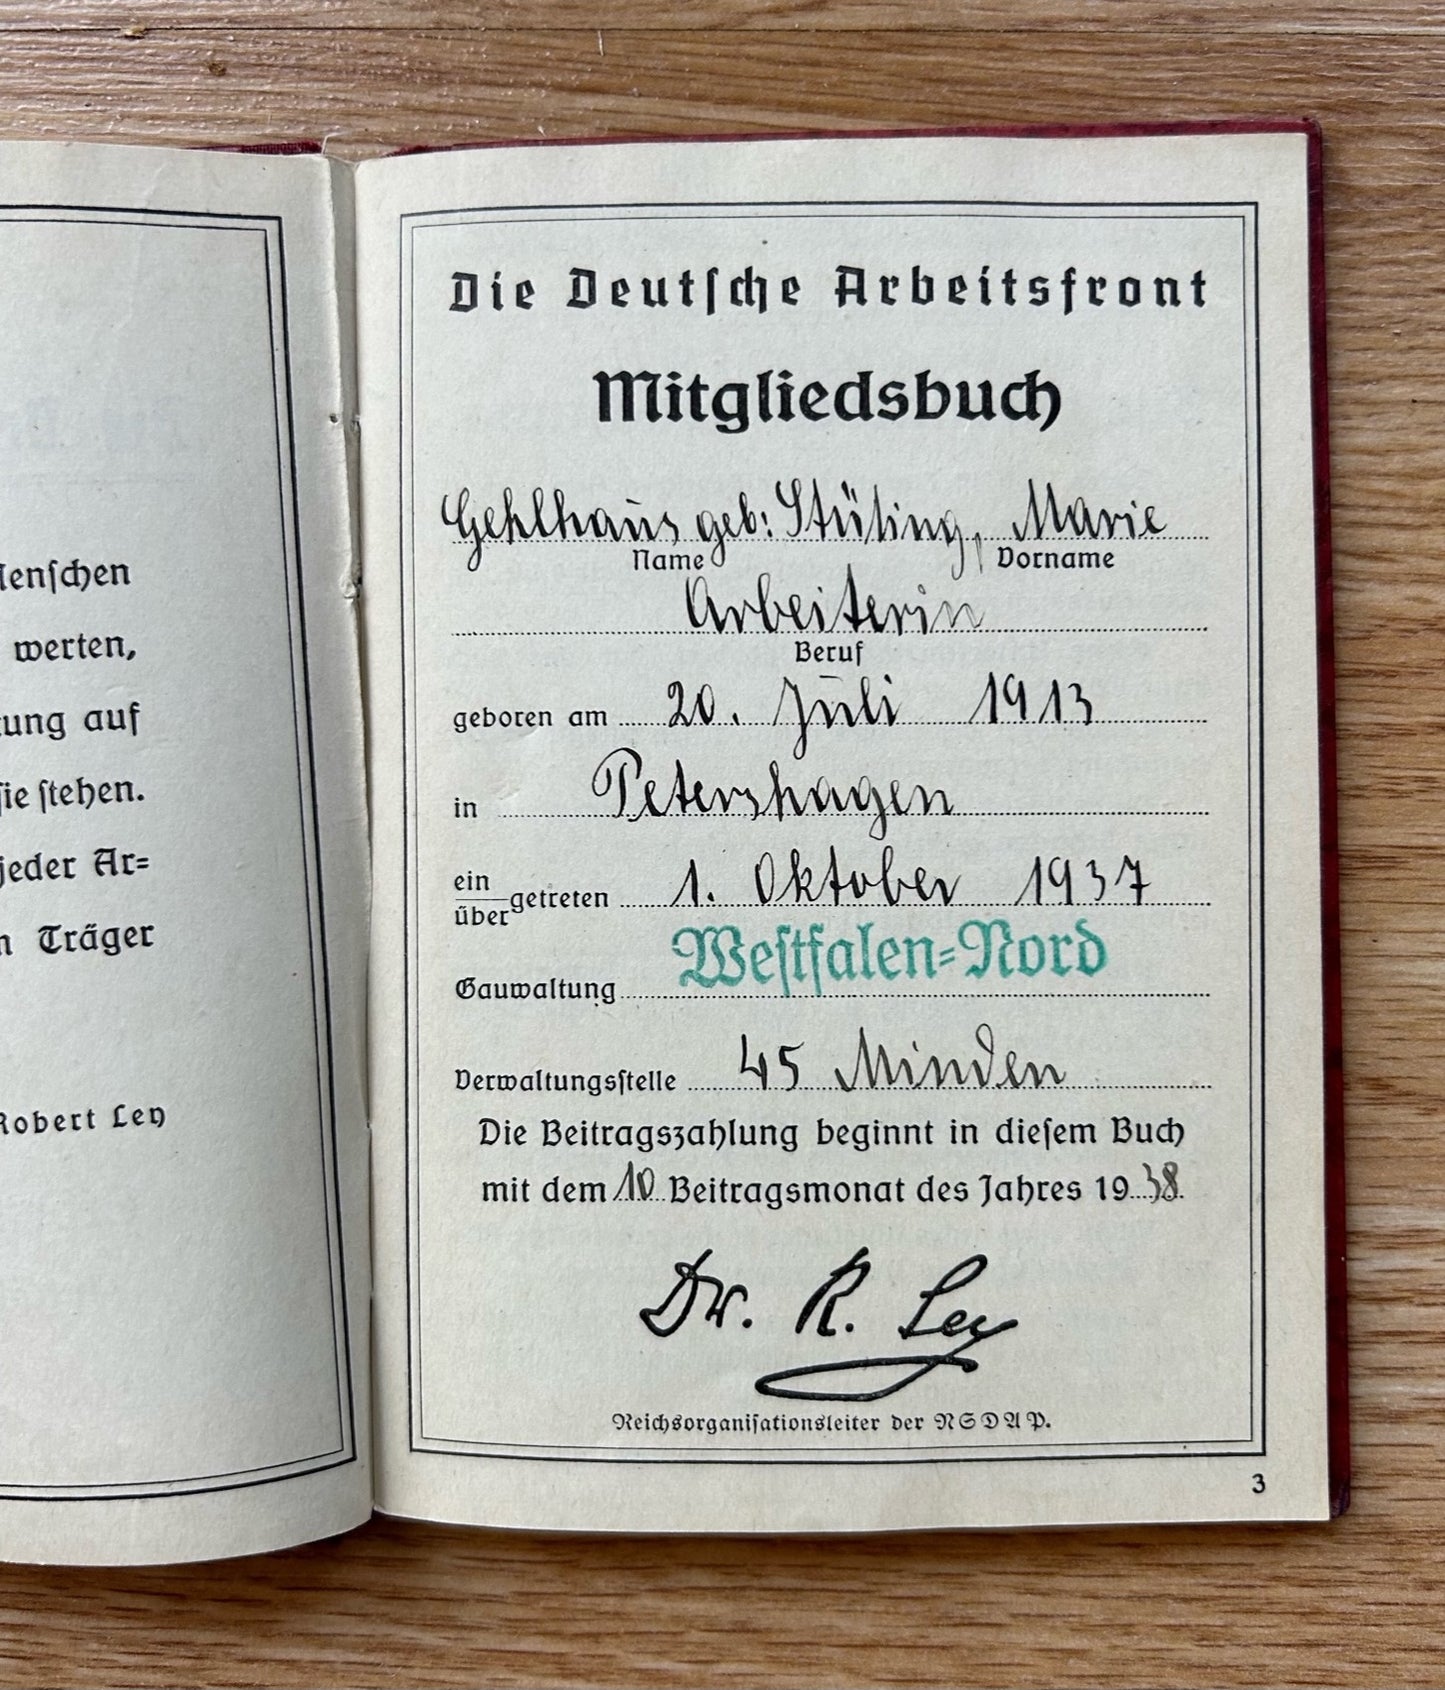 Menschen
werten,
tung auf
sie stehen.
jeder Ar=
n Träger
Robert Ley
Die Deutsche Arbeitsfront
Mitgliedsbuch
Gehlhaus geb: Stüting, Marie
Name Vorname
Arbeiterin
Beruf
geboren am 20. Juli 1913
in Petershagen
ein
über getreten 1. Oktober 1937
Westfalen-Nord
Gauwaltung
Verwaltungsstelle 45 Minden
Die Beitragszahlung beginnt in diesem Buch
mit dem 10 Beitragsmonat des Jahres 1938
Dr. R. Ley
Reichsorganisationsleiter der NSDAP.
3